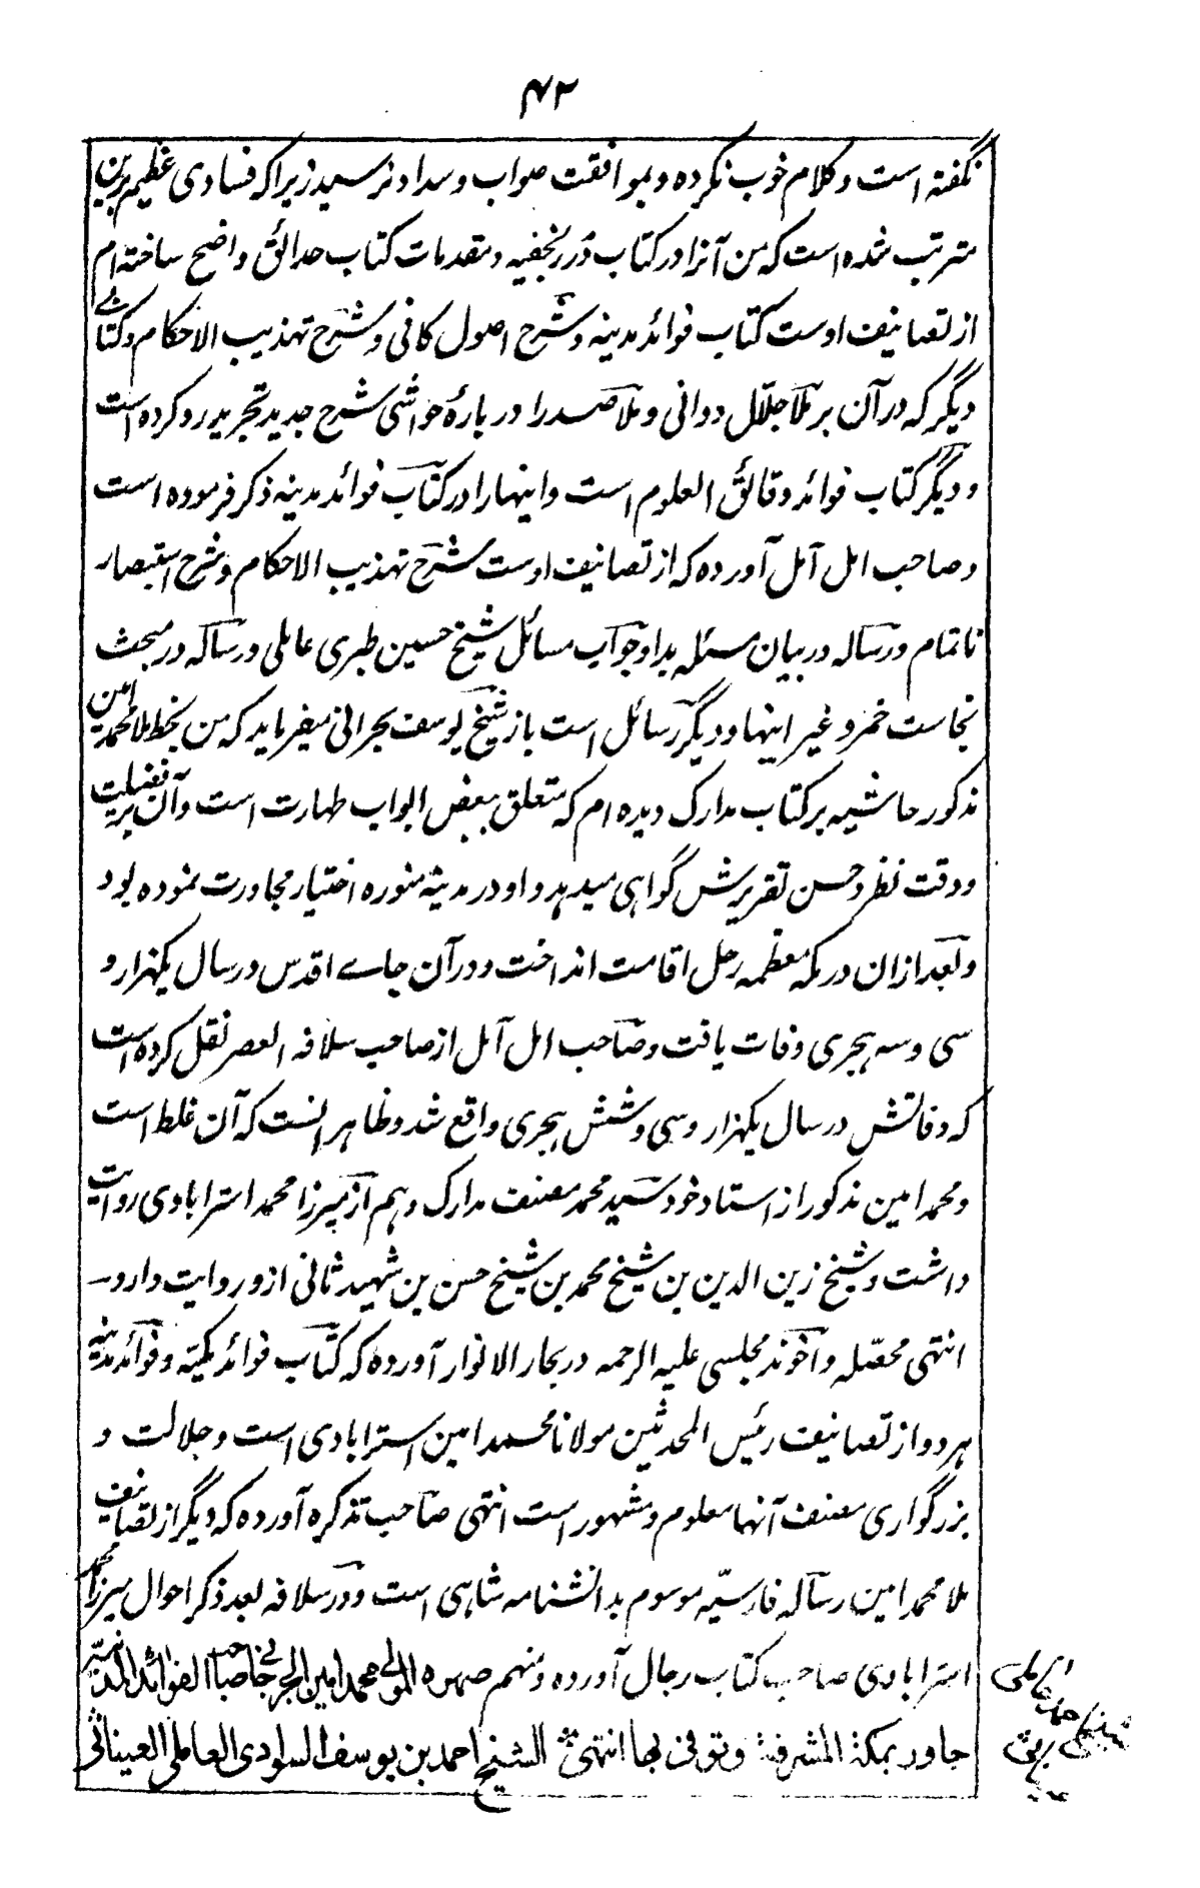 ۴۲
نگفته است و کلام خوب نکرده و بموافقت صواب و سداد نرسید زیرا که فسادی عظیم برین
مترتب شده است که من آنرا در کتاب درر نجفیه و مقدمات کتاب حدائق واضح ساخته ام
از تصانیف اوست کتاب فوائد مدینه و شرح اصول کافی و شرح تهذیب الاحکام و کتابے
دیگر که در آن بر ملا جلال دوانی و ملا صدرا در بارهٔ حواشی شرح جدید تجرید رد کرده است
و دیگر کتاب فوائد دقائق العلوم است و اینها را در کتاب فوائد مدینه ذکر فرموده است
و صاحب امل آمل آورده که از تصانیف اوست شرح تهذیب الاحکام و شرح استبصار
ناتمام و رساله در بیان مسئله بدا و جواب مسائل شیخ حسین ظهری عاملی و رساله در مبحث
نجاست خمر و غیر اینها و دیگر رسائل است باز شیخ یوسف بحرانی میفرماید که من بخط ملا محمد امین
مذکور حاشیه بر کتاب مدارک دیده ام که متعلق ببعض ابواب طهارت است و آن بر فضیلت
و دقت نظر و حسن تقریرش گواهی میدهد و او در مدینه منوره اختیار مجاورت نموده بود
و بعد ازان در مکه معظمه رحل اقامت انداخت و در آن جاے اقدس در سال یکهزار و
سی و سه هجری وفات یافت و صاحب امل آمل از صاحب سلافه العصر نقل کرده است
که وفاتش در سال یکهزار و سی و شش هجری واقع شد و ظاهر انست که آن غلط است
و محمد امین مذکور از استاد خود سید محمد مصنف مدارک و هم از میرزا محمد استرابادی روایت
داشت و شیخ زین الدین بن شیخ محمد بن شیخ حسن بن شهید ثانی ازو روایت دارد
انتهی محصله و آخوند مجلسی علیه الرحمه در بحار الانوار آورده که کتاب فوائد مکیه و فوائد مدنیه
هر دو از تصانیف رئیس المحدثین مولانا محمد امین استرابادی است و جلالت و
بزرگواری مصنف آنها معلوم و مشهور است انتهی صاحب تذکره آورده که دیگر از تصانیف
ملا محمد امین رساله فارسیه موسوم بدانشنامه شاهی است و در سلافه بعد ذکر احوال میرزا محمد
استرابادی صاحب کتاب رجال آورده و منهم صهره المولی محمد امین الجرجانی صاحب الفوائد المدنیه
جاور بمکة المشرفة و توفی بها انتهی الشیخ احمد بن یوسف السوادی العاملی العیناثی
شیخ احمد
عاملی